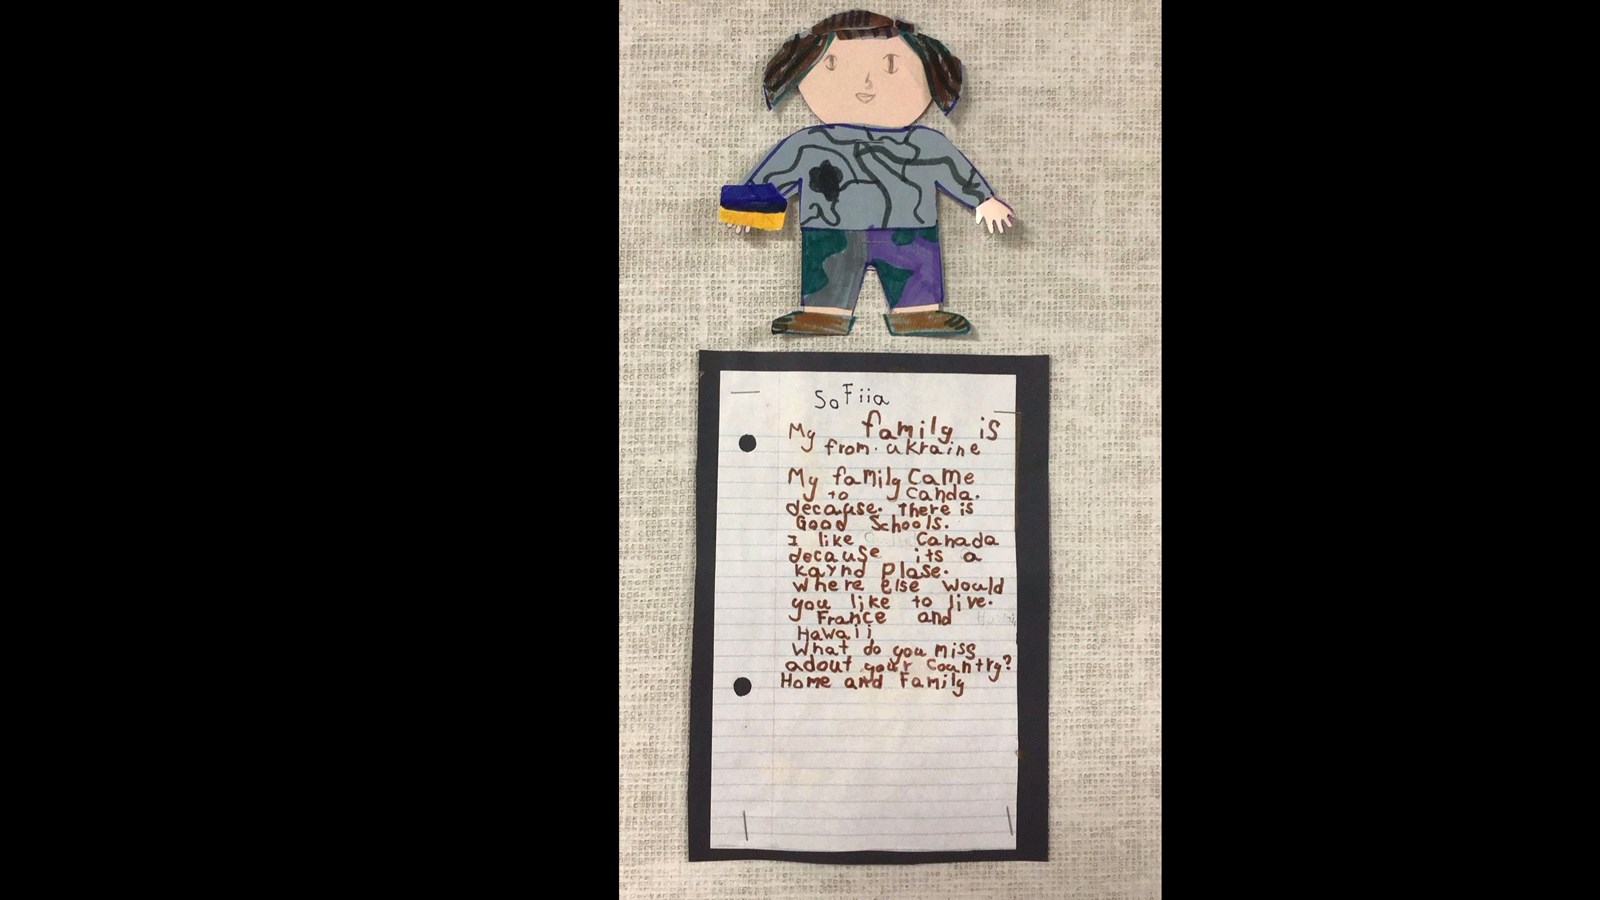 SoFiia
My family is
from. ukraine
My family Came
to canda.
decause. there is
Good Schools.
I like Canada
decause its a
kaynd plase.
where else would
you like to live.
France and
Hawaii
What do you miss
adout your Country?
Home and Family